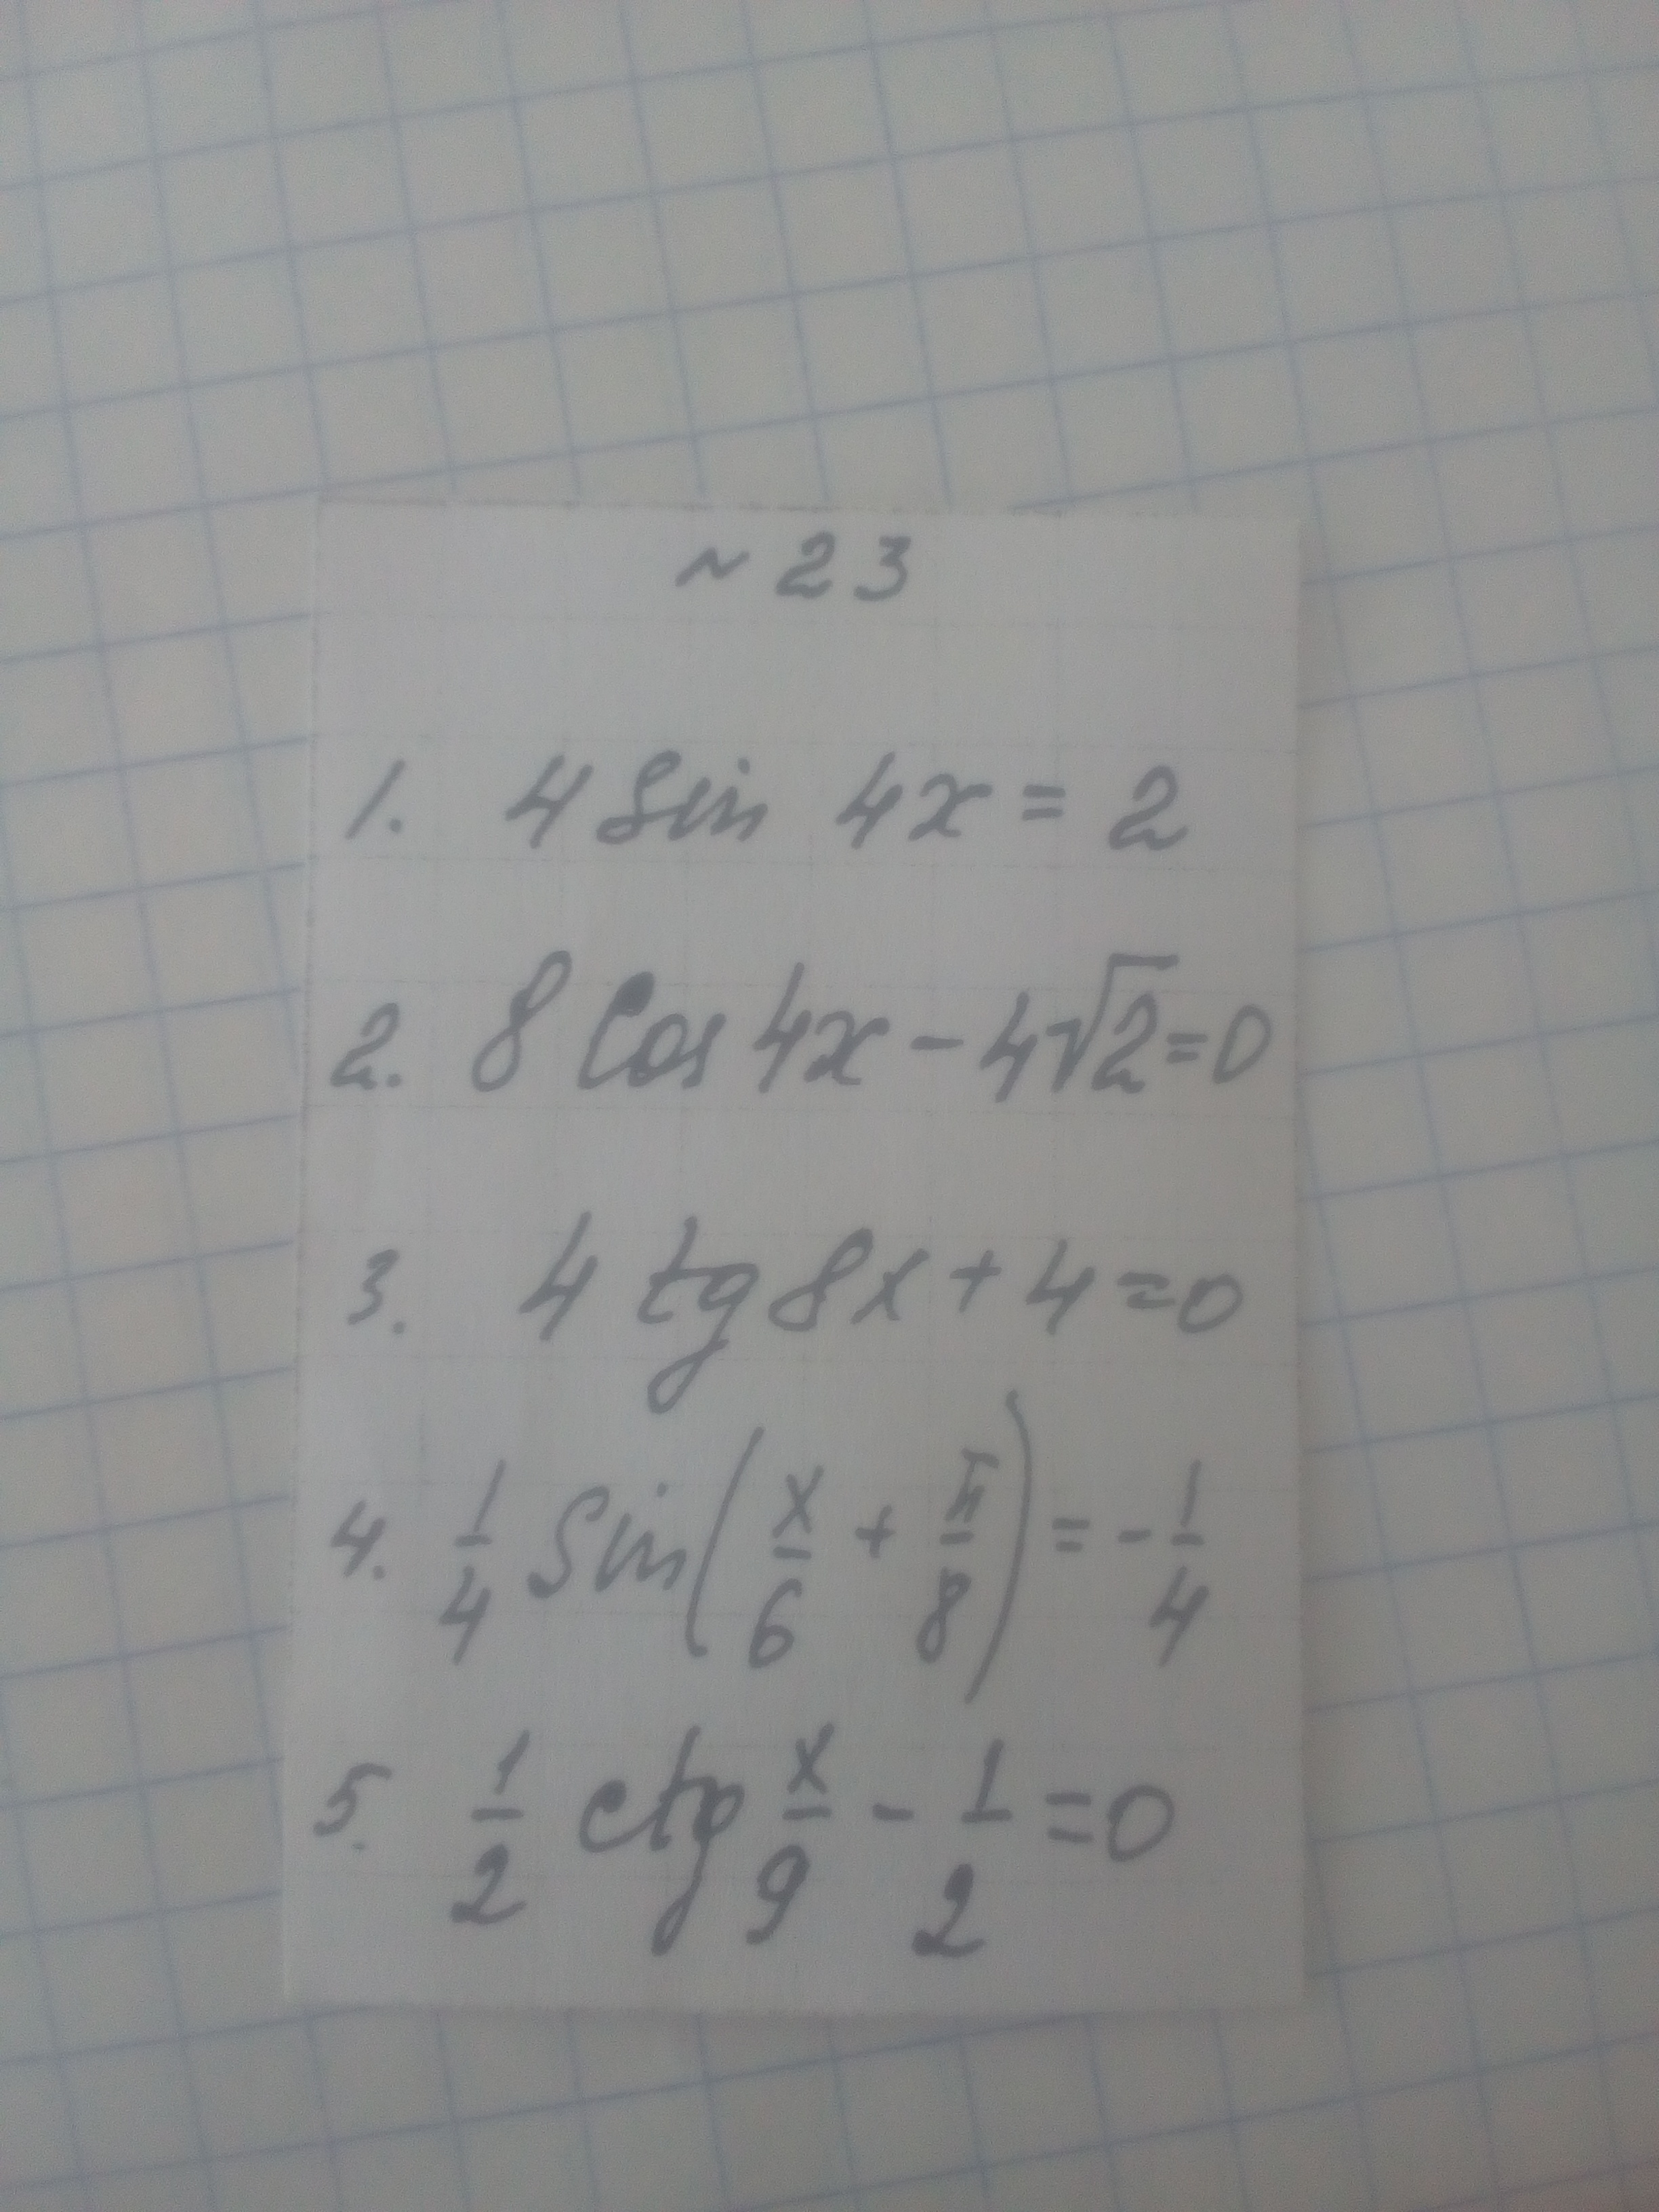 ~ 23
1. 4 Sin 4x = 2
2. 8 Cos 4x - 4√2 = 0
3. 4 tg 8x + 4 = 0
4. 1/4 Sin(x/6 + π/8) = - 1/4
5. 1/2 ctg x/9 - 1/2 = 0